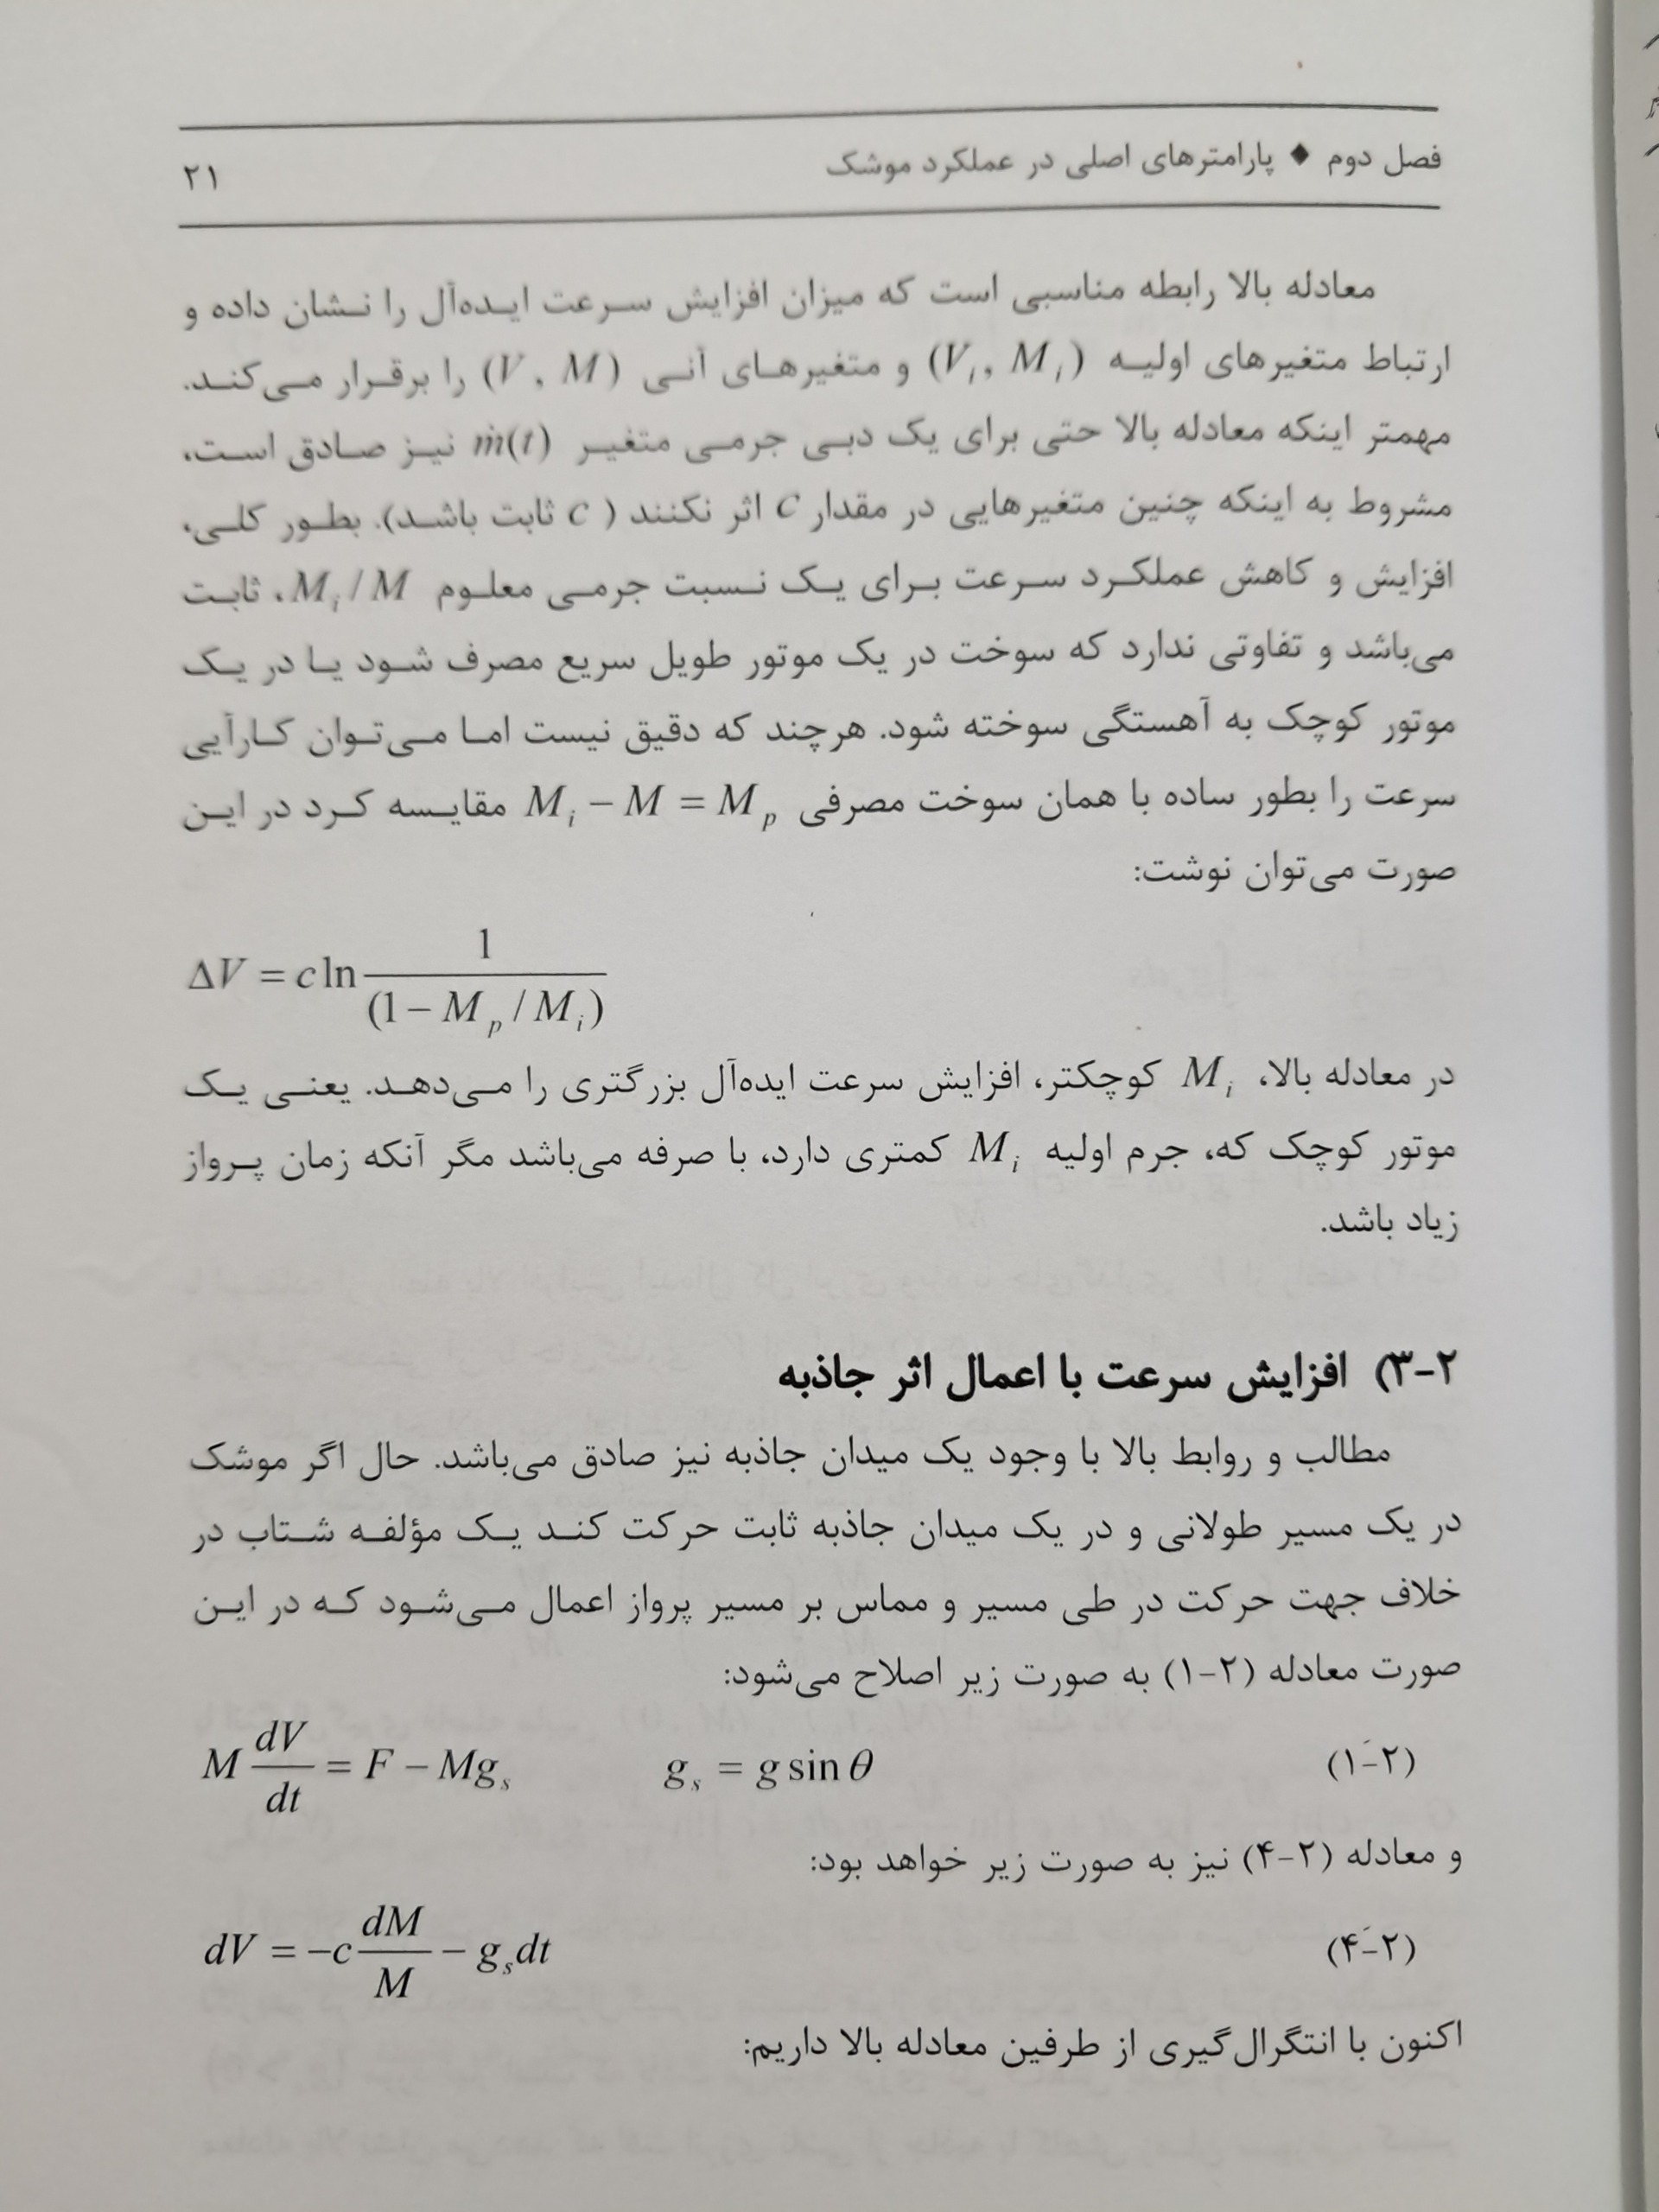 فصل دوم ♦ پارامترهای اصلی در عملکرد موشک ۲۱
معادله بالا رابطه مناسبی است که میزان افزایش سرعت ایده‌آل را نشان داده و
ارتباط متغیرهای اولیه (V_i, M_i) و متغیرهای آنی (V, M) را برقرار می‌کند.
مهمتر اینکه معادله بالا حتی برای یک دبی جرمی متغیر ṁ(t) نیز صادق است،
مشروط به اینکه چنین متغیرهایی در مقدار C اثر نکنند (C ثابت باشد). بطور کلی،
افزایش و کاهش عملکرد سرعت برای یک نسبت جرمی معلوم M_i / M، ثابت
می‌باشد و تفاوتی ندارد که سوخت در یک موتور طویل سریع مصرف شود یا در یک
موتور کوچک به آهستگی سوخته شود. هرچند که دقیق نیست اما می‌توان کارآیی
سرعت را بطور ساده با همان سوخت مصرفی M_i – M = M_p مقایسه کرد در این
صورت می‌توان نوشت:
ΔV = c ln 1 / (1 – M_p / M_i)
در معادله بالا، M_i کوچکتر، افزایش سرعت ایده‌آل بزرگتری را می‌دهد. یعنی یک
موتور کوچک که، جرم اولیه M_i کمتری دارد، با صرفه می‌باشد مگر آنکه زمان پرواز
زیاد باشد.
۲-۳) افزایش سرعت با اعمال اثر جاذبه
مطالب و روابط بالا با وجود یک میدان جاذبه نیز صادق می‌باشد. حال اگر موشک
در یک مسیر طولانی و در یک میدان جاذبه ثابت حرکت کند یک مؤلفه شتاب در
خلاف جهت حرکت در طی مسیر و مماس بر مسیر پرواز اعمال می‌شود که در این
صورت معادله (۲-۱) به صورت زیر اصلاح می‌شود:
M dV/dt = F – Mg_s g_s = g sin θ (۲-۱́)
و معادله (۲-۴) نیز به صورت زیر خواهد بود:
dV = –c dM/M – g_s dt (۲-۴́)
اکنون با انتگرال‌گیری از طرفین معادله بالا داریم: